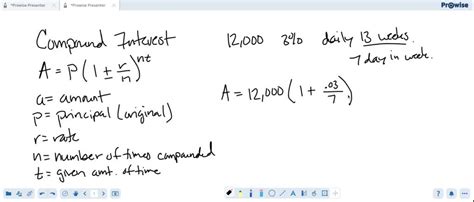 Prowise Presenter
Prowise Presenter
Prowise
Compound Interest
A = P(1 + r/n)^nt
a = amount
p = principal (original)
r = rate
n = number of times compounded
t = given amt. of time
12,000 3% daily 13 weeks
7 day in week.
A = 12,000 (1 + .03/7)